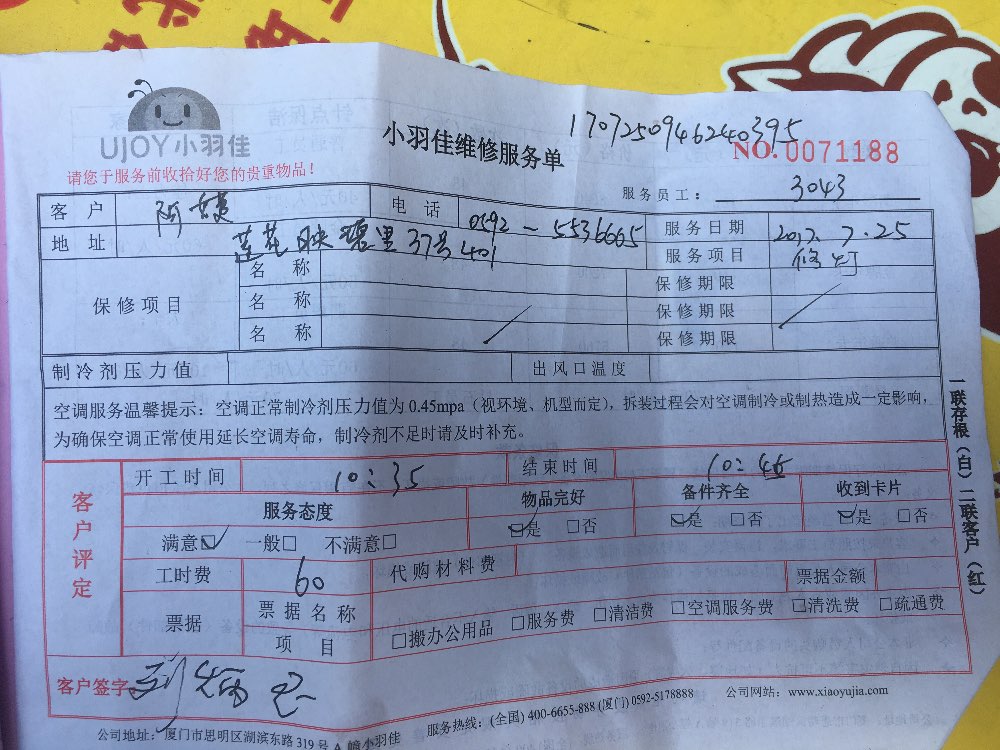 UJOY小羽佳
小羽佳维修服务单
1707250946240395
NO. 0071188
请您于服务前收拾好您的贵重物品！
服务员工： 3043
客 户 阿婕 电 话 0592-5536665 服务日期 2017.7.25
地 址 莲花映碧里37号401 服务项目 修灯
保修项目 名 称 保修期限
名 称 保修期限
名 称 保修期限
制冷剂压力值 出风口温度
空调服务温馨提示：空调正常制冷剂压力值为0.45mpa（视环境、机型而定），拆装过程会对空调制冷或制热造成一定影响，
为确保空调正常使用延长空调寿命，制冷剂不足时请及时补充。
客户评定 开工时间 10:35 结束时间 10:45
服务态度 物品完好 备件齐全 收到卡片
满意☑ 一般□ 不满意□ ☑是 □否 ☑是 □否 ☑是 □否
工时费 60 代购材料费 票据金额
票据 票据名称
项 目 □搬办公用品 □服务费 □清洁费 □空调服务费 □清洗费 □疏通费
客户签字
公司地址：厦门市思明区湖滨东路319号A幢小羽佳 服务热线：(全国) 400-6655-888 (厦门) 0592-5178888 公司网站：www.xiaoyujia.com
一联存根（白）二联客户（红）